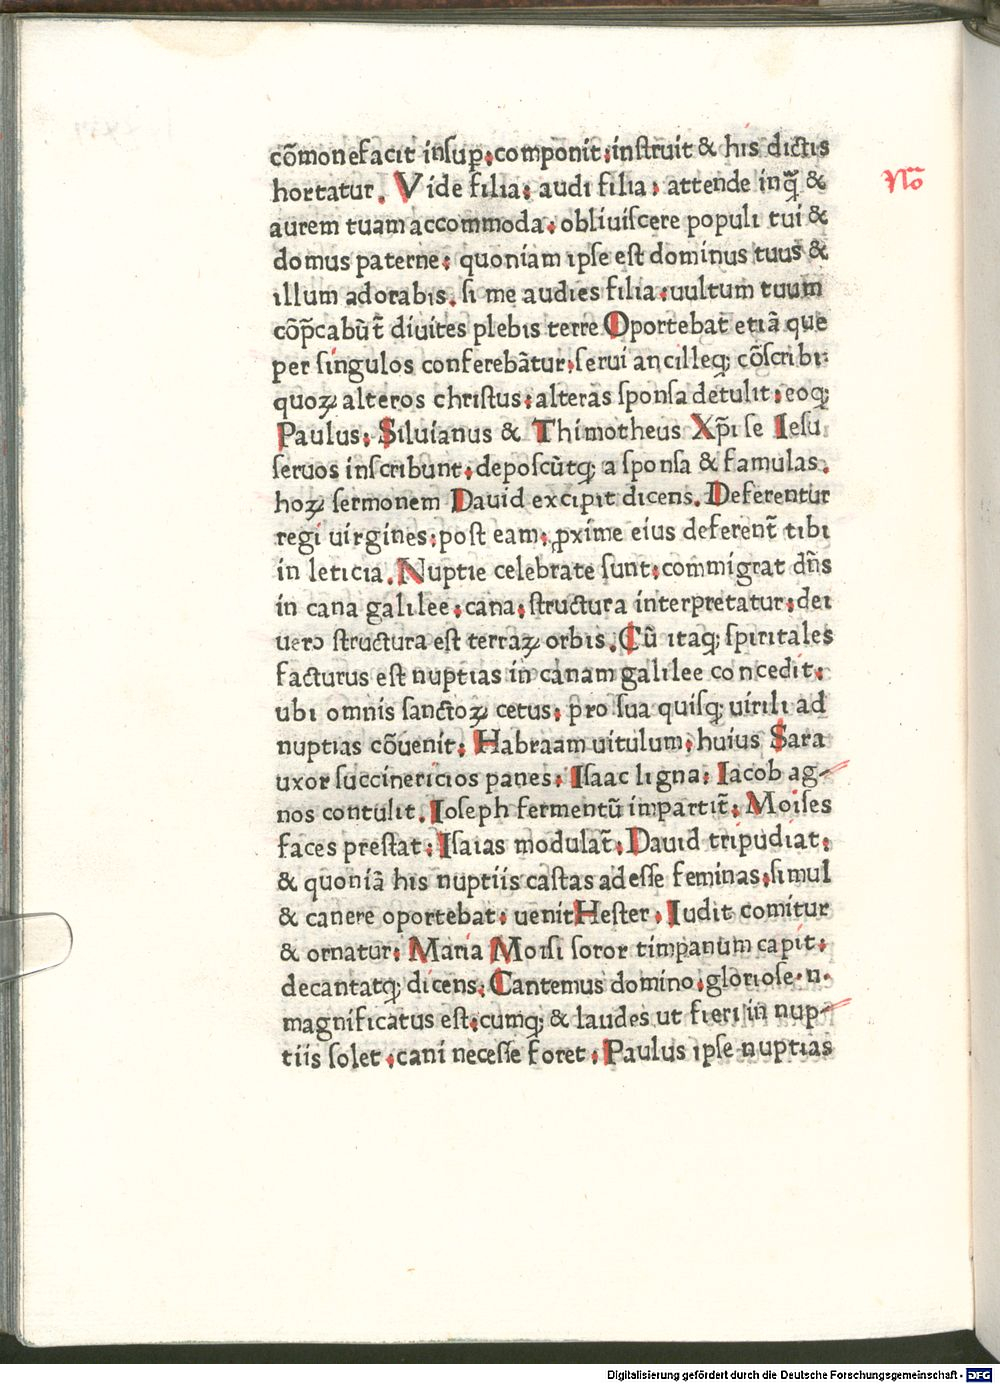 cōmonefacit insup:componit:instruit & his dictis
hortatur. Vide filia: audi filia: attende inq̄ &
aurem tuam accommoda: obliuiscere populi tui &
domus paterne: quoniam ipse est dominus tuus &
illum adorabis. si me audies filia:uultum tuum
cōp̄cabūt̄ diuites plebis terre Oportebat etiā que
per singulos conferebātur:serui ancilleq; cōscribi:
quoꝝ alteros christus:alteras sponsa detulit:eoq;
Paulus: Siluianus & Thimotheus Xp̄i se Iesu
seruos inscribunt:deposcūtq; a sponsa & famulas.
hoꝝ sermonem Dauid excipit dicens. Deferentur
regi uirgines:post eam: ꝓxime eius deferent̄ tibi
in leticia. Nuptie celebrate sunt:commigrat dn̄s
in cana galilee:cana:structura interpretatur:dei
uero structura est terraꝝ orbis. Cū itaq; spiritales
facturus est nuptias in canam galilee concedit:
ubi omnis sanctoꝝ cetus: pro sua quisq; uirili ad
nuptias cōuenit: Habraam uitulum: huius Sara
uxor succinericios panes: Isaac ligna: Iacob ag-
nos contulit. Ioseph fermentū impartit̄: Moises
faces prestat: Isaias modulat̄: Dauid tripudiat:
& quoniā his nuptiis castas adesse feminas:simul
& canere oportebat: uenit Hester: Iudit comitur
& ornatur: Maria Moisi soror timpanum capit:
decantatq; dicens: Cantemus domino:gloriose.n.
magnificatus est:cumq; & laudes ut fieri in nup-
tiis solet:cani necesse foret: Paulus ipse nuptias
Nō
Digitalisierung gefördert durch die Deutsche Forschungsgemeinschaft - DFG